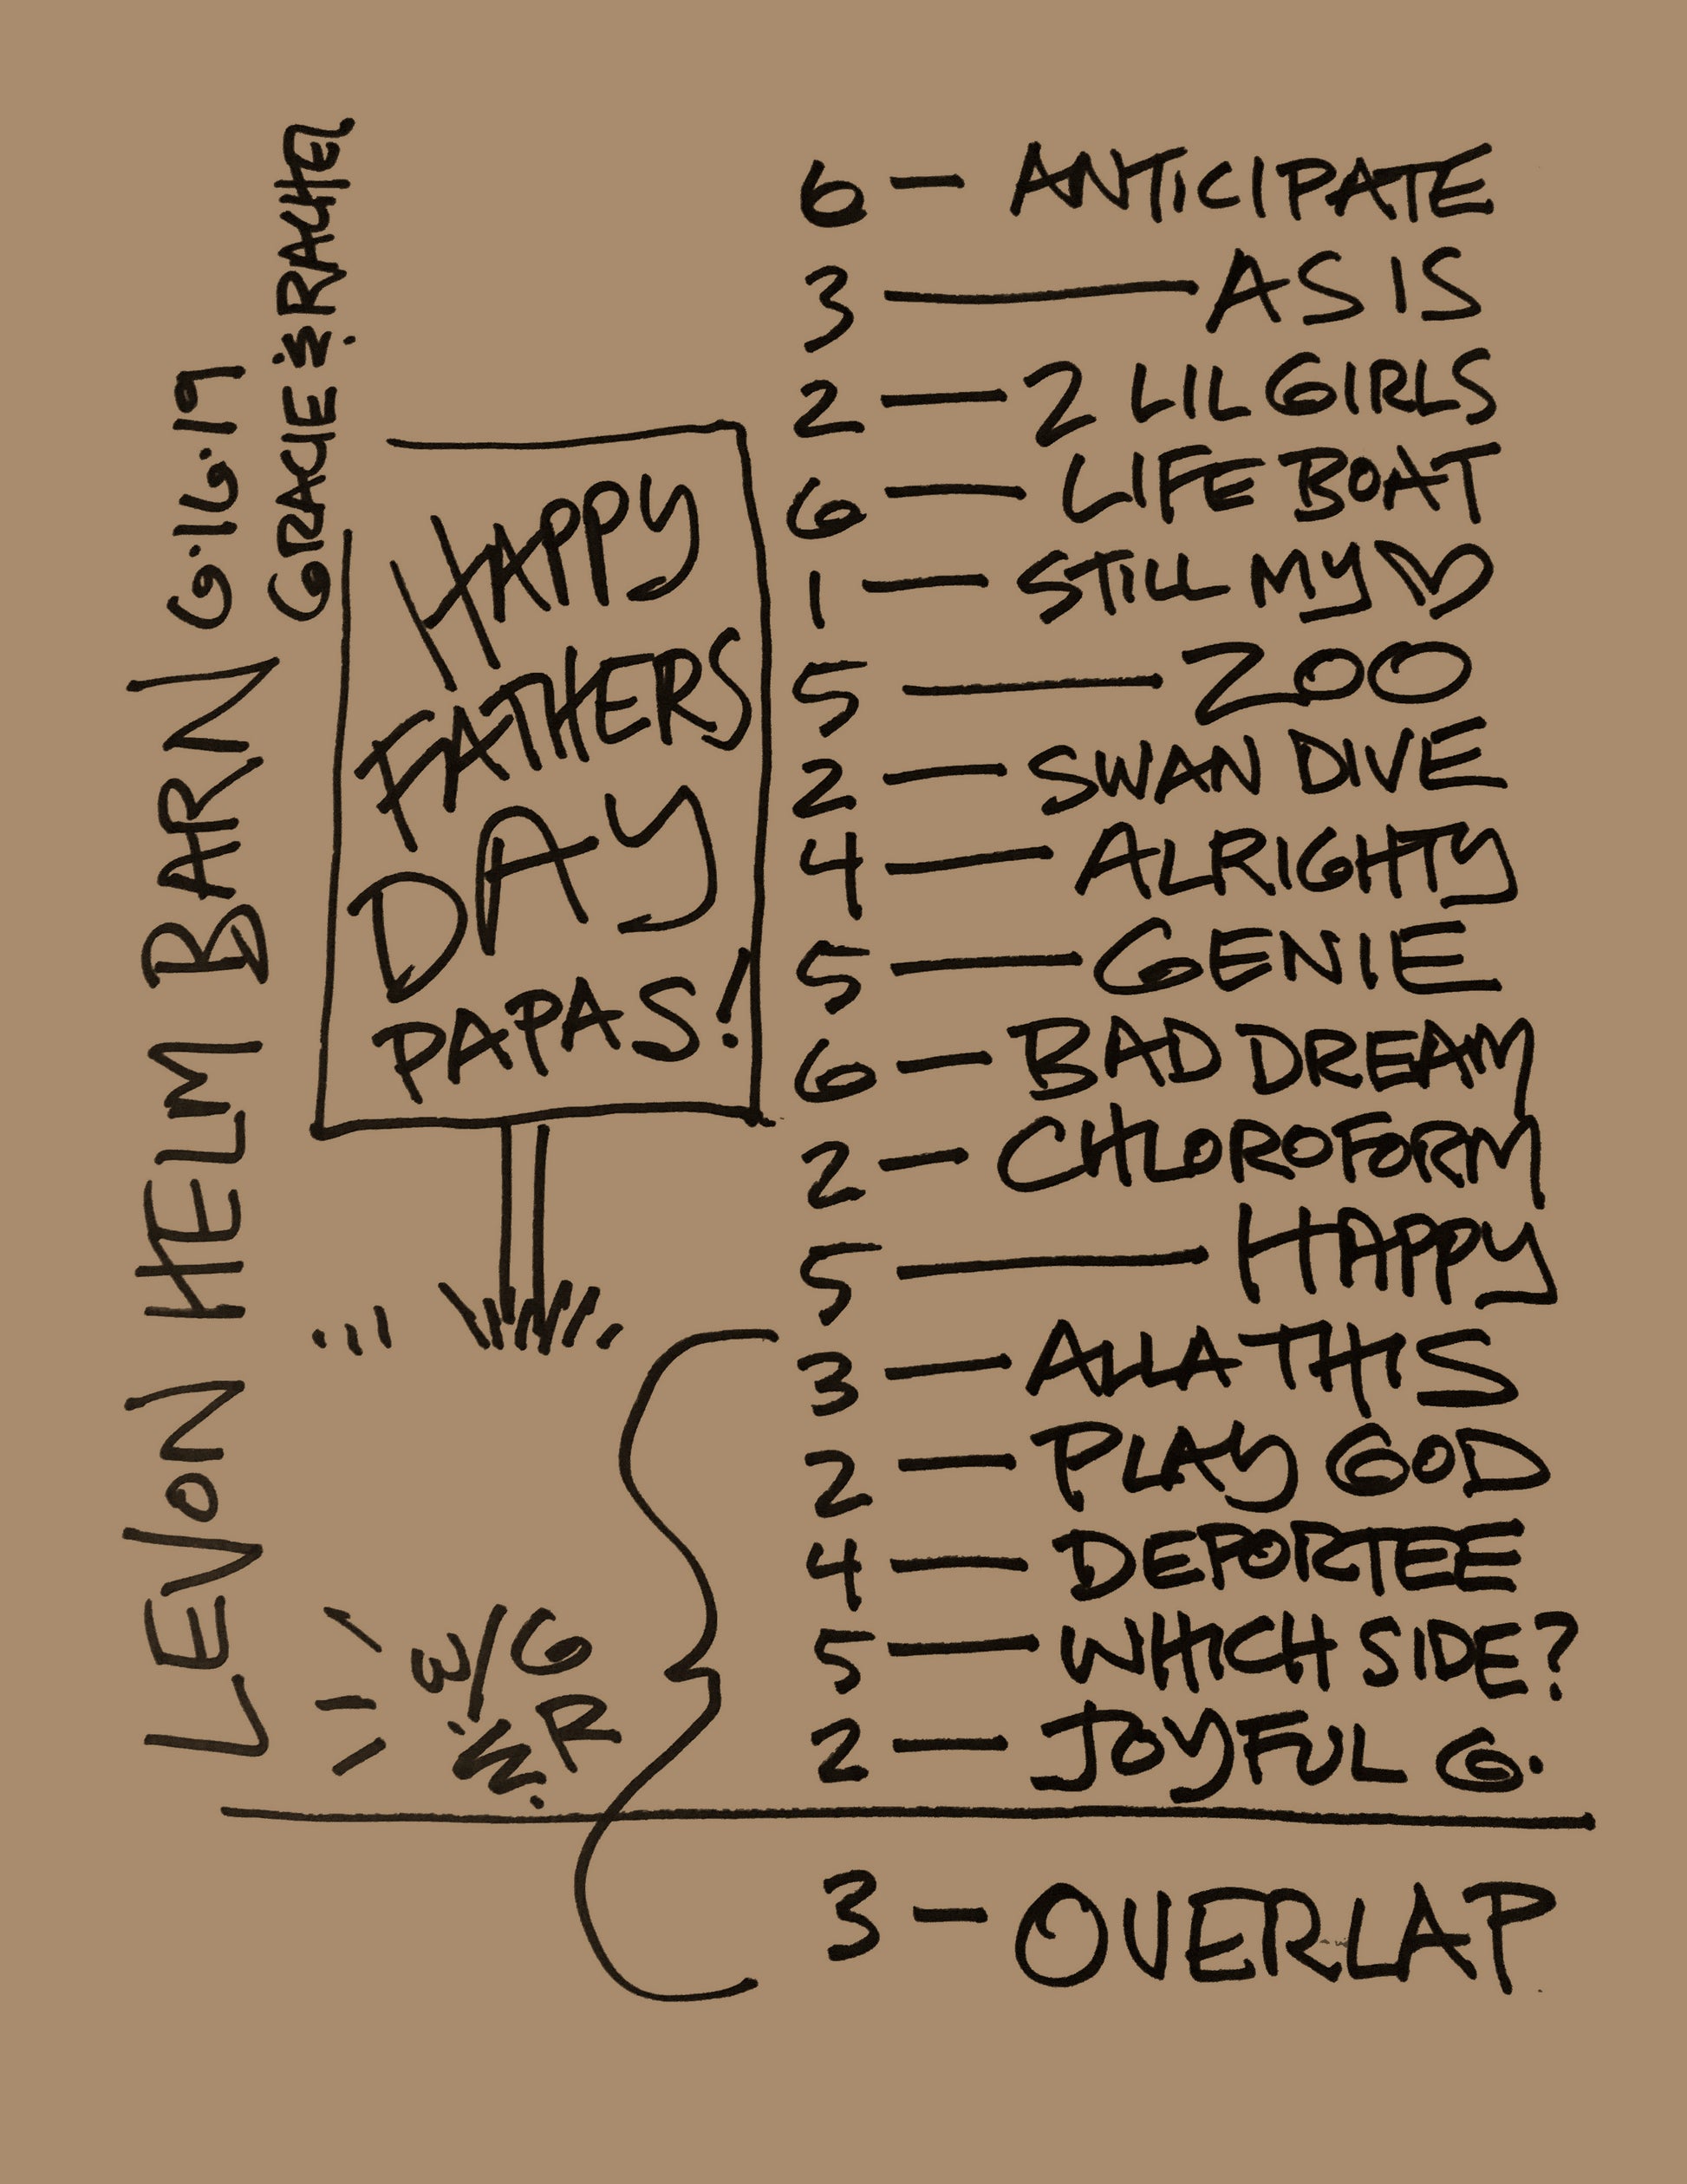 LEVON HELM BARN 6.16.19
GRACIE & RACHEL
HAPPY
FATHERS
DAY
PAPAS!
6 — ANTICIPATE
3 — AS IS
2 — 2 LIL GIRLS
6 — LIFE BOAT
1 — STILL MY ♡
5 — ZOO
2 — SWAN DIVE
4 — ALRIGHTY
5 — GENIE
6 — BAD DREAM
2 — CHLOROFORM
5 — HAPPY
3 — ALLA THIS
2 — PLAY GOD
4 — DEPORTEE
5 — WHICH SIDE?
2 — JOYFUL G.
W/ G
& R
3 — OVERLAP